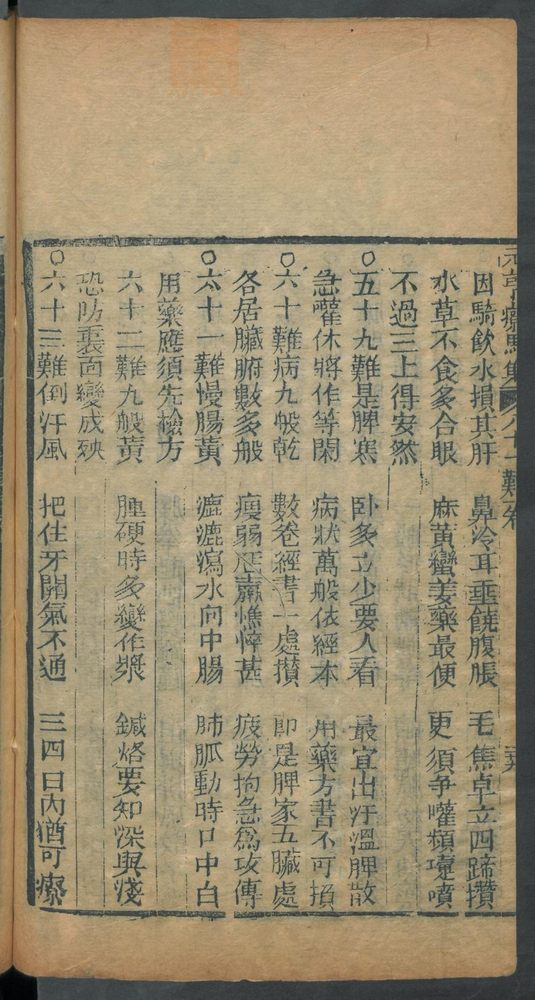 元亨療馬集 八十一難卷
因騎飲水損其肝 鼻冷耳垂饒腹脹 毛焦卓立四蹄攢
水草不食多合眼 麻黃蠻姜藥最便 更須爭嚾頻噴
不過三上得安然
○五十九難是脾寒 卧多立少要人看 最宜出汗溫脾散
急嚾休將作等閑 病狀萬般依經本 用藥方書不可損
○六十難病九般乾 數卷經書一處攢 即是脾家五臟處
各居臟腑數多般 瘦弱尫羸憔悴甚 疲勞拘急爲攻傳
○六十一難慢腸黃 漉漉瀉水向中腸 肺脈動時口中白
用藥應須先檢方
六十二難九般黃 腫硬時多變作漿 鍼烙要知深與淺
恐防裏面變成殃
○六十三難倒汗風 把住牙關氣不通 三四日內猶可療